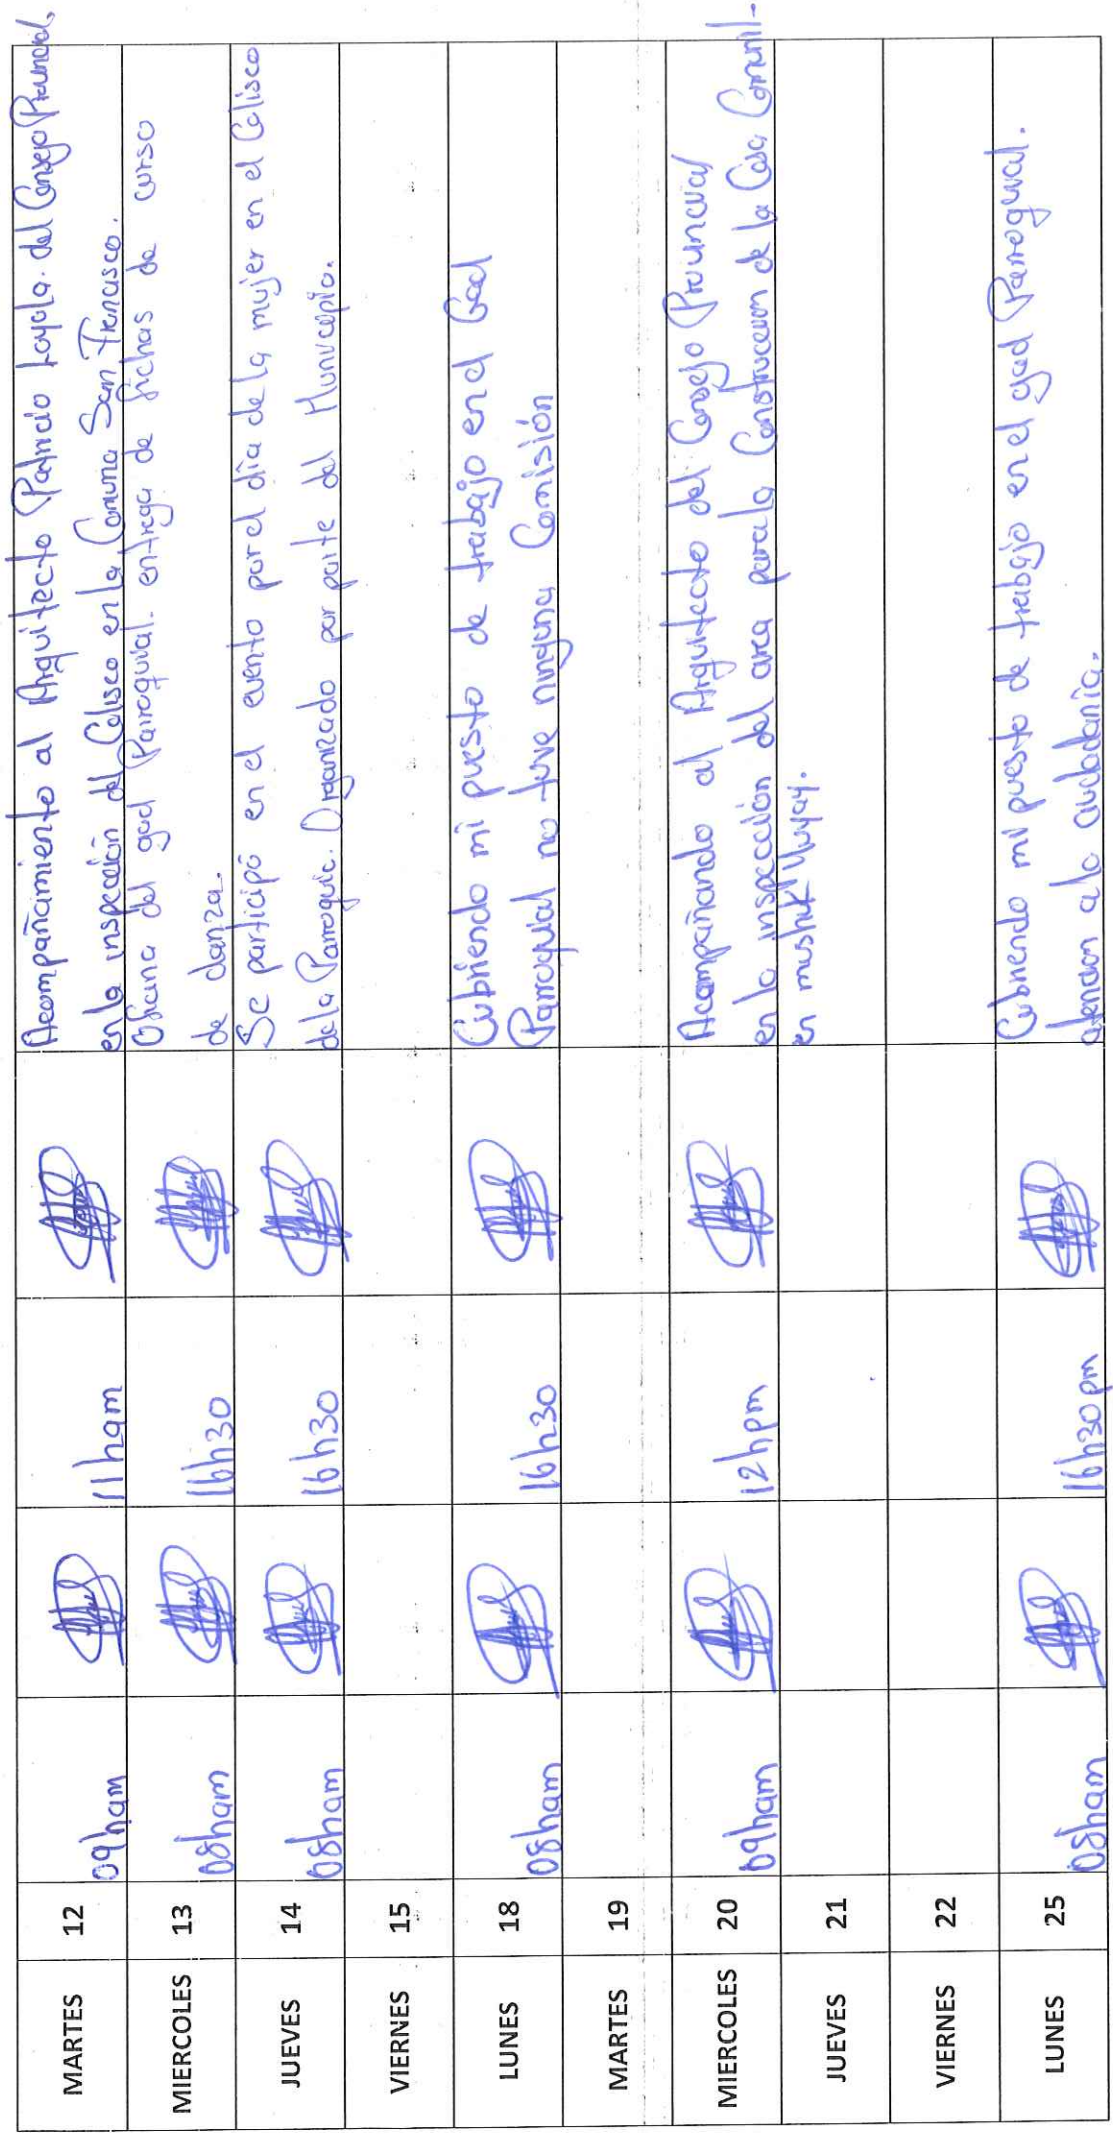 MARTES 12 09ham 11ham Acompañamiento al Arquitecto Patricio Loyola. del Consejo Provincial,
en la inspección del Coliseo en la Comuna San Francisco.
MIERCOLES 13 08ham 16h30 Oficina del gad Parroquial. entrega de fichas de curso
de danza.
JUEVES 14 08ham 16h30 Se participó en el evento por el día de la mujer en el Coliseo
de la Parroquia. Organizado por parte del Municipio.
VIERNES 15
LUNES 18 08ham 16h30 Cubriendo mi puesto de trabajo en el Gad
Parroquial no tuve ninguna Comisión
MARTES 19
MIERCOLES 20 09ham 12hpm Acompañando al Arquitecto del Consejo Provincial
en la inspección del area para la Construccion de la Casa Comunal-
en mushuk Yuyay.
JUEVES 21
VIERNES 22
LUNES 25 08ham 16h30pm Cubriendo mi puesto de trabajo en el gad Parroquial.
atencion a la ciudadania.